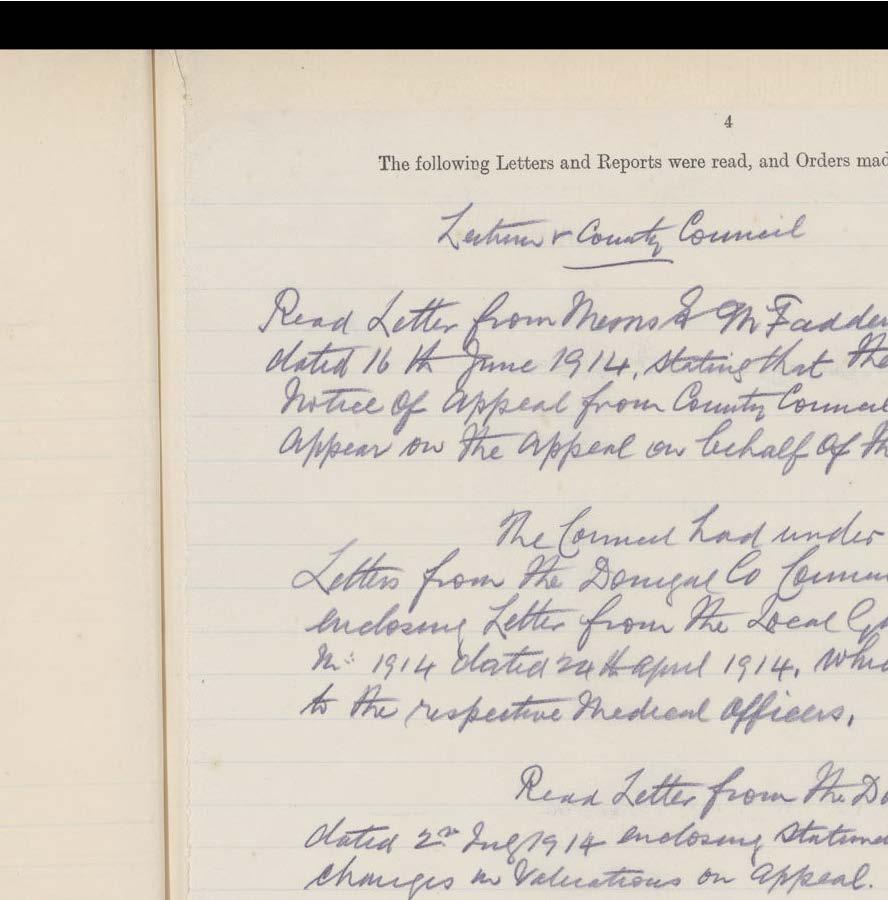 4
The following Letters and Reports were read, and Orders mad
County Council
Read Letter from McFadden
dated 16th June 1914, stating that the
Notice of Appeal from County Council
Appear on the Appeal on behalf of th
The Council had under
Letters from the Donegal Co Council
enclosing Letter from the Local
1914 dated 24th April 1914, whi
to the respective Medical Officers,
Read Letter from the Do
dated 2nd 1914 enclosing Stateme
changes in Valuations on Appeal.